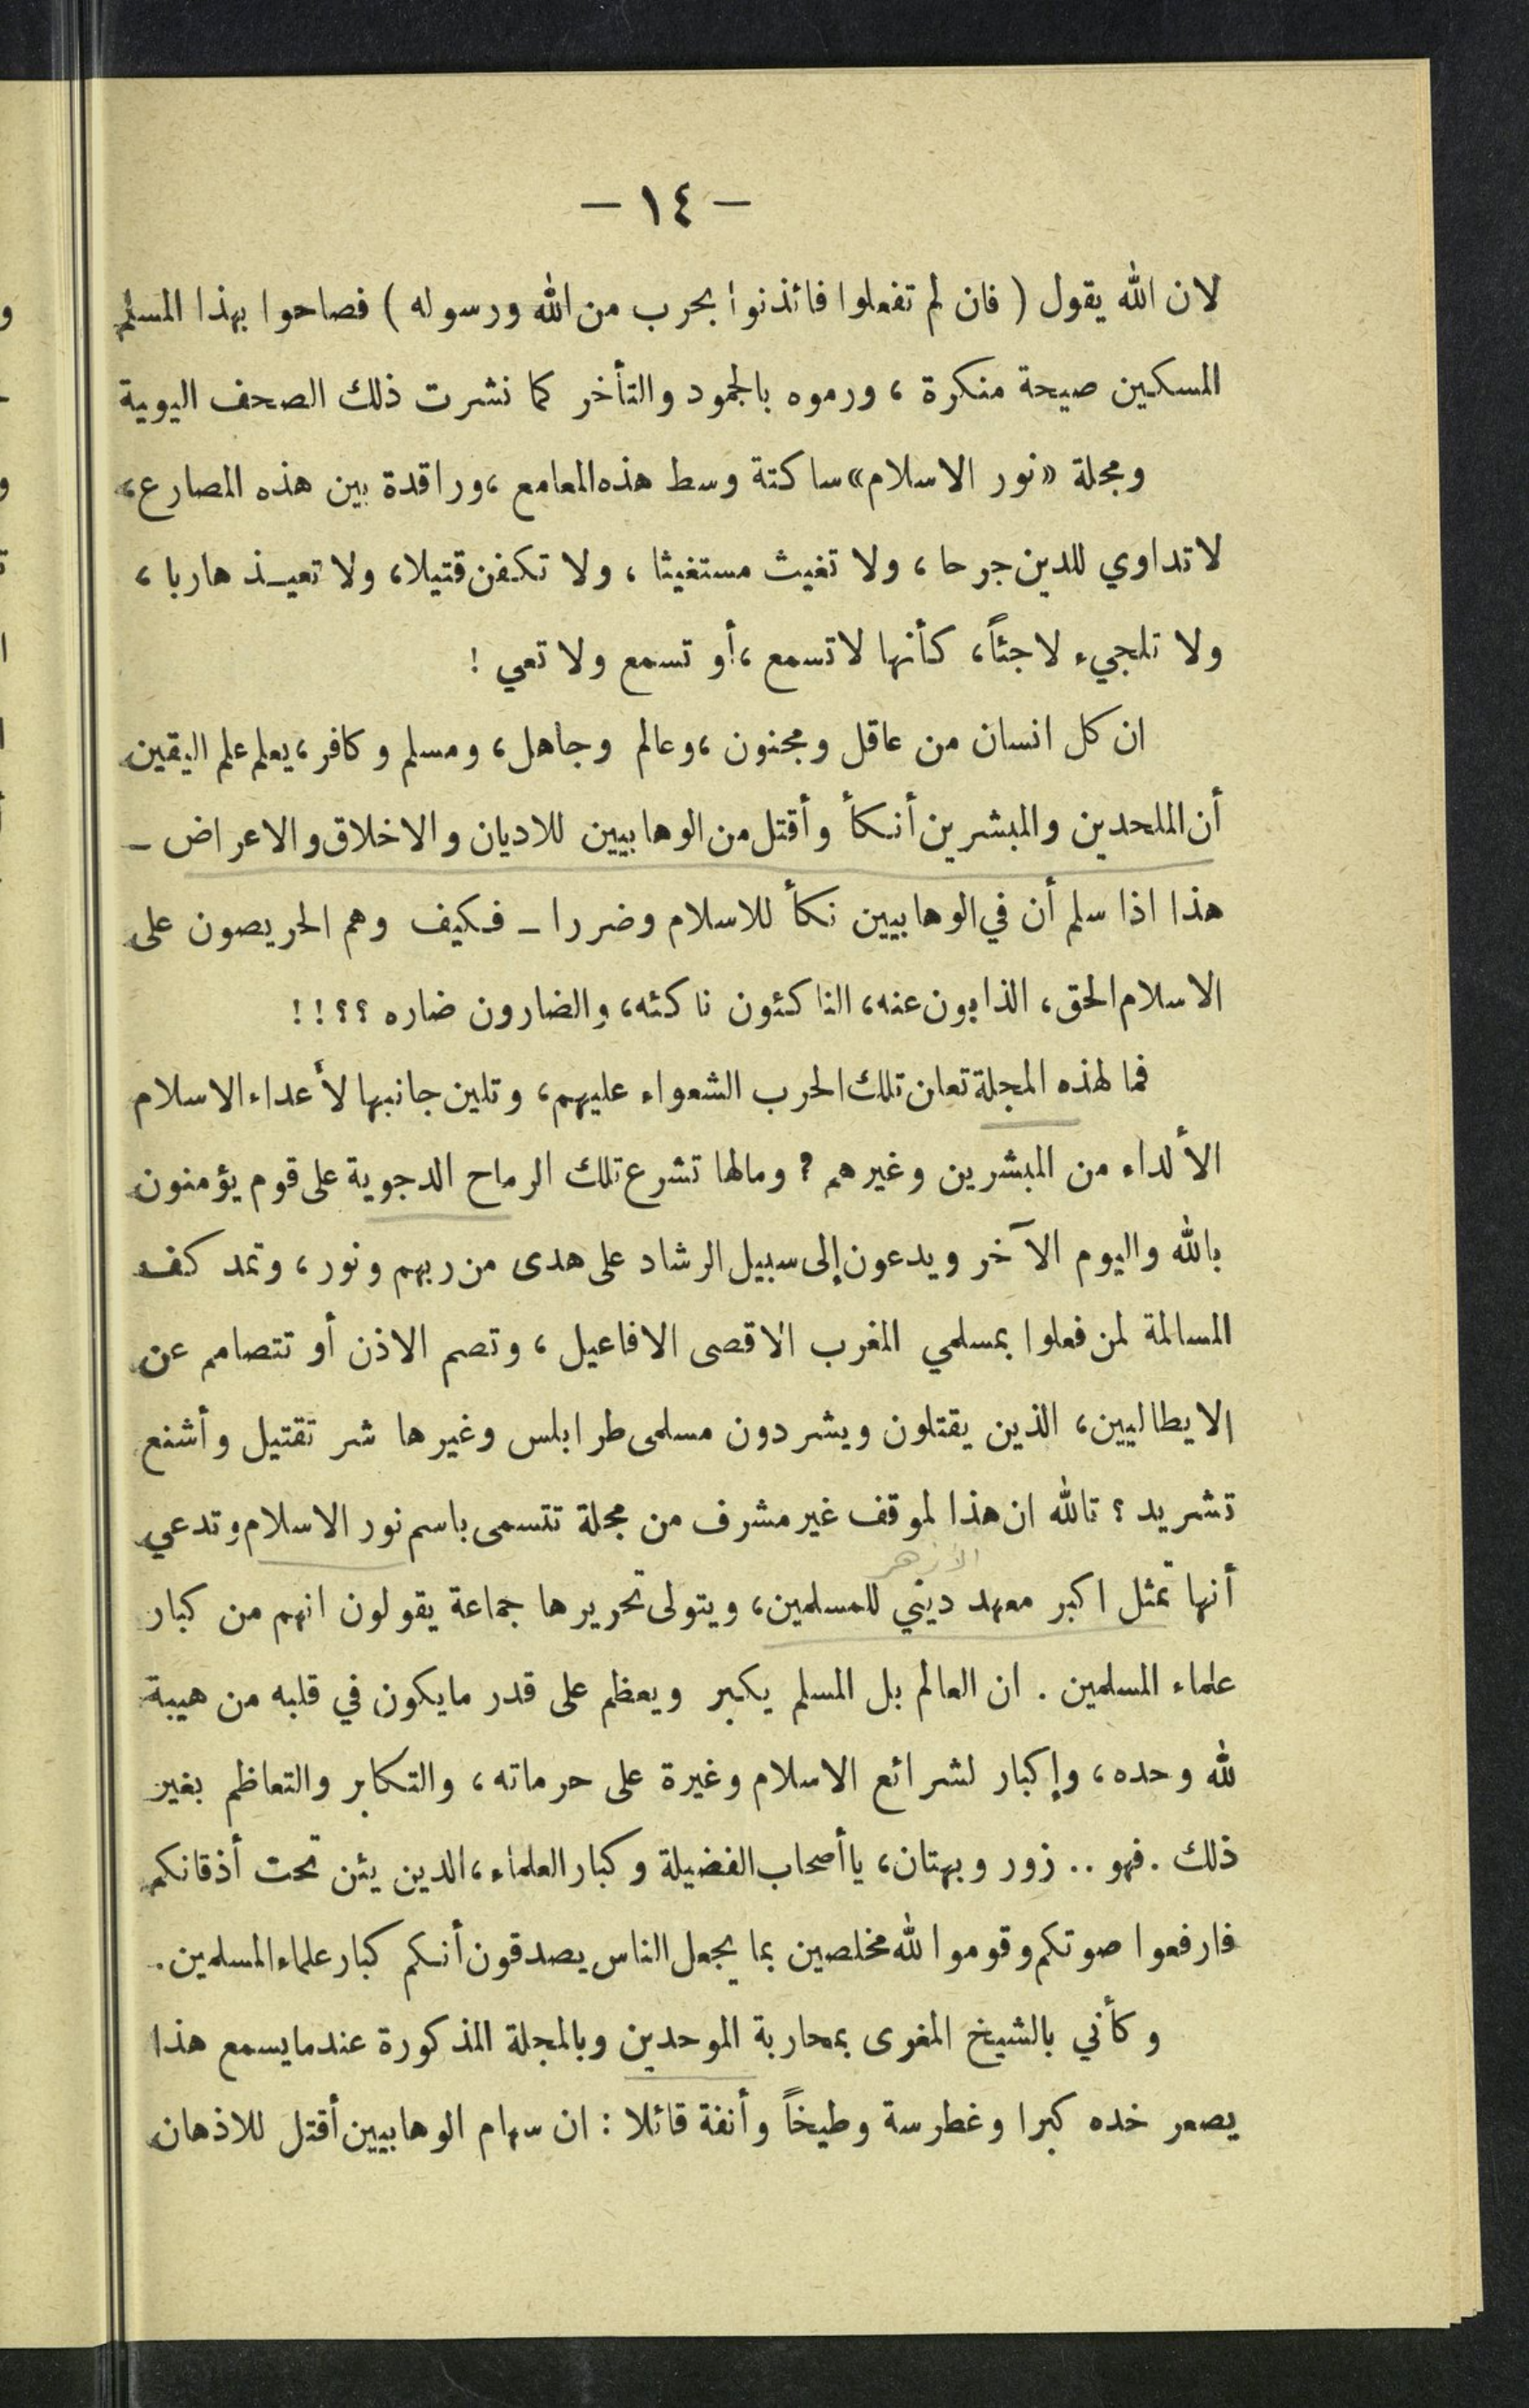 — ١٤ —
لان الله يقول ( فان لم تفعلوا فائذنوا بحرب من الله ورسوله ) فصاحوا بهذا المسلم
المسكين صيحة منكرة ، ورموه بالجمود والتأخر كما نشرت ذلك الصحف اليومية
ومجلة «نور الاسلام» ساكتة وسط هذه المعامع ، وراقدة بين هذه المصارع ،
لا تداوي للدين جرحا ، ولا تغيث مستغيثا ، ولا تكفن قتيلا ، ولا تعيذ هاربا ،
ولا تلجيء لاجئاً ، كأنها لا تسمع ، أو تسمع ولا تعي !
ان كل انسان من عاقل ومجنون ، وعالم وجاهل ، ومسلم وكافر ، يعلم علم اليقين
أن الملحدين والمبشرين أنكأ وأقتل من الوهابيين للاديان والاخلاق والاعراض –
هذا اذا سلم أن في الوهابيين نكأ للاسلام وضررا – فكيف وهم الحريصون على
الاسلام الحق ، الذابون عنه ، الناكئون ناكئه ، والضارون ضاره ؟؟!!
فما لهذه المجلة تعلن تلك الحرب الشعواء عليهم ، وتلين جانبها لأعداء الاسلام
الألداء من المبشرين وغيرهم ? ومالها تشرع تلك الرماح الدجوية على قوم يؤمنون
بالله واليوم الآخر ويدعون إلى سبيل الرشاد على هدى من ربهم ونور ، وتمد كف
المسالمة لمن فعلوا بمسلمي المغرب الاقصى الافاعيل ، وتصم الاذن أو تتصامم عن
الايطاليين ، الذين يقتلون ويشردون مسلمى طرابلس وغيرها شر تقتيل وأشنع
تشريد ؟ تالله ان هذا لموقف غير مشرف من مجلة تتسمى باسم نور الاسلام وتدعي
الازهر
أنها تمثل اكبر معهد ديني للمسلمين ، ويتولى تحريرها جماعة يقولون انهم من كبار
علماء المسلمين . ان العالم بل المسلم يكبر ويعظم على قدر مايكون في قلبه من هيبة
لله وحده ، وإكبار لشرائع الاسلام وغيرة على حرماته ، والتكابر والتعاظم بغير
ذلك . فهو .. زور وبهتان ، يا أصحاب الفضيلة وكبار العلماء ، الدين يئن تحت أذقانكم
فارفعوا صوتكم وقوموا لله مخلصين بما يجعل الناس يصدقون أنكم كبار علماء المسلمين .
وكأني بالشيخ المغرى بمحاربة الموحدين وبالمجلة المذكورة عندما يسمع هذا
يصعر خده كبرا وغطرسة وطيخاً وأنفة قائلا : ان سهام الوهابيين أقتل للاذهان